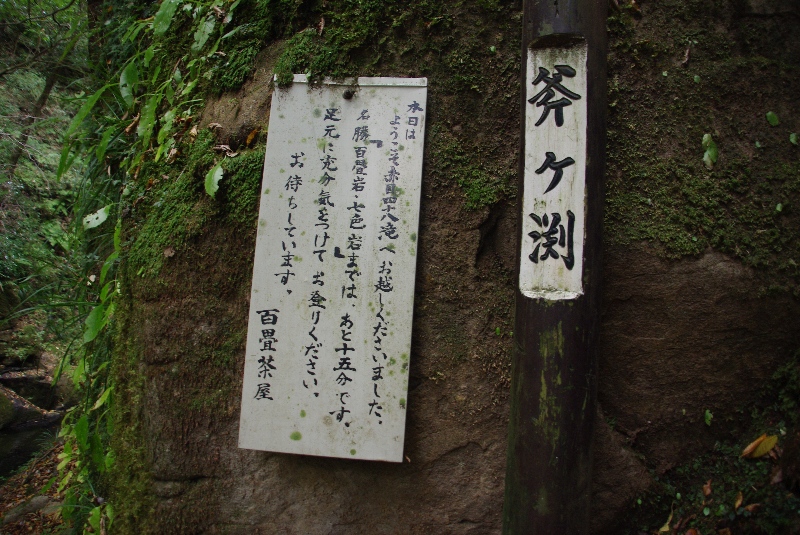 斧ヶ渕
本日は
ようこそ赤目四十八滝へお越しくださいました。
名勝『百畳岩・七色岩』までは、あと十五分です。
足元に充分気をつけてお登りください。
お待ちしています。
百畳茶屋